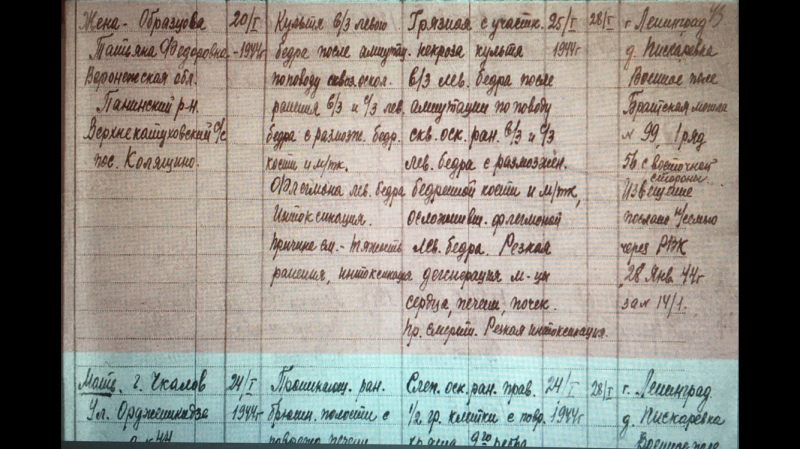 Жена - Образцова
Татьяна Федоровна
Воронежская обл.
Панинский р-н.
Верхнекатуховский с/с
пос. Колящино.
20/I
-1944г
Культя в/3 левого
бедра после ампут.
по поводу сквоз. оскол.
ранения в/3 и с/3 лев.
бедра с размозж. бедр.
кости и м/тк.
Флегмона лев. бедра
Интоксикация.
Причина см. - тяжесть
ранения, интоксикация
Грязная с участк.
некроза культя
в/3 лев. бедра после
ампутации по поводу
скв. оск. ран. в/3 и с/3
лев. бедра с размозжён.
бедренной кости и м/тк,
осложнивш. флегмоной
лев. бедра. Резкая
дегенерация м-цы
сердца, печени, почек.
Пр. смерти. Резкая интоксикация.
25/I
1944г
28/I
г. Ленинград
д. Пискаревка
Военное поле
Братская могила
№ 99, 1 ряд
5й с восточной
стороны
Извещение
послано семье
через РВК
28 Янв. 44г
за № 14/1.
Мать. г. Чкалов
Ул. Орджоникидзе
24/I
1944г
Проникающ. ран.
брюшн. полости с
Слеп. оск. ран. прав.
1/2 гр. клетки с повр.
24/I
1944г
28/I
г. Ленинград.
д. Пискаревка
Военное поле